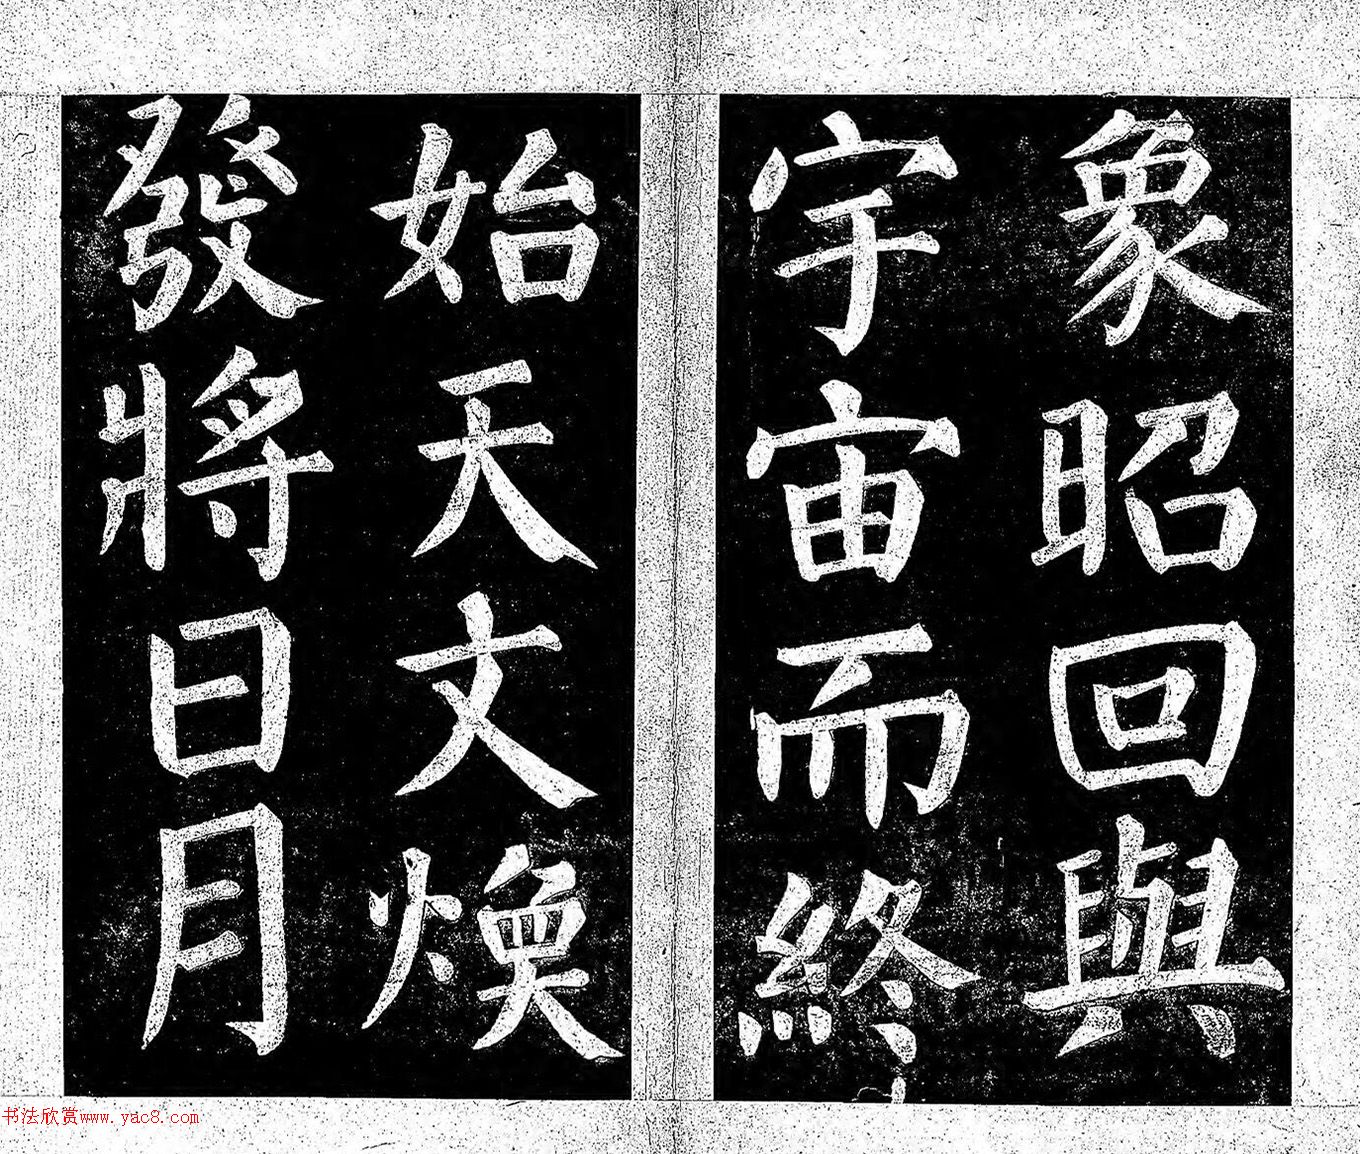 象昭回與
宇宙而終
始天文煥
發將日月
书法欣赏www.yac8.com